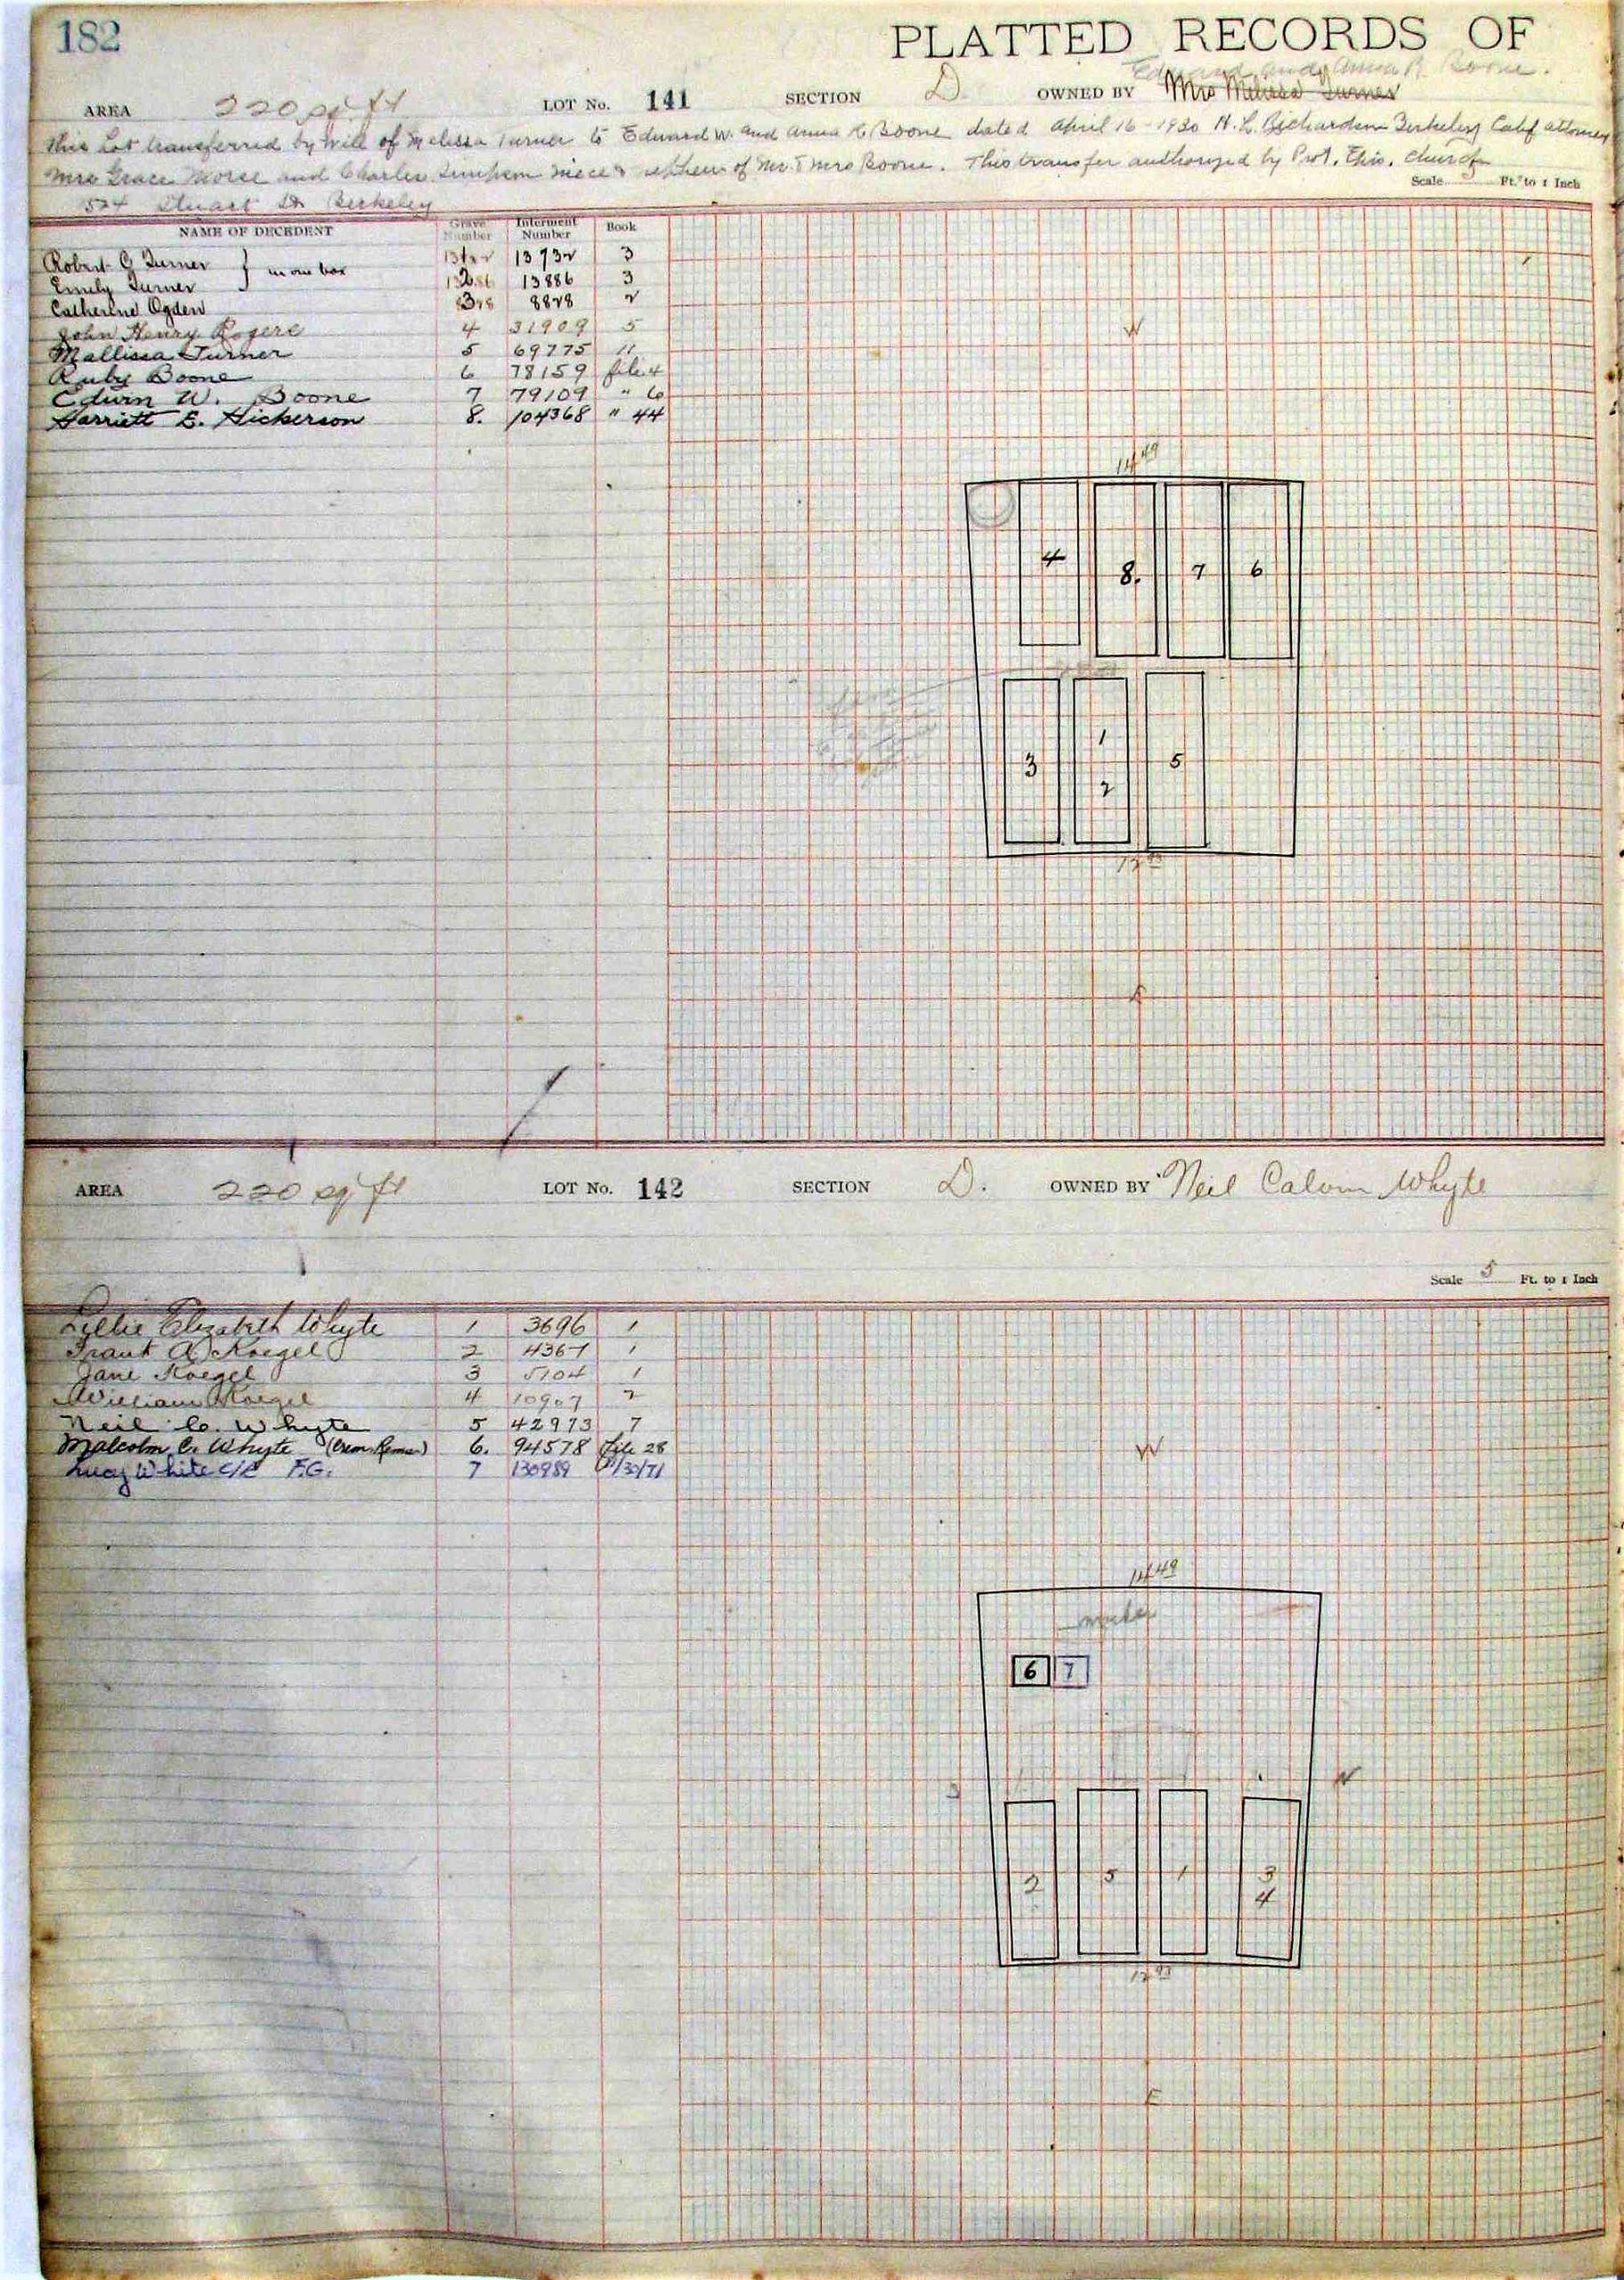 182
PLATTED RECORDS OF
Edward and Anna R. Boone.
AREA 220 sq. ft LOT No. 141 SECTION D. OWNED BY Mrs Melissa Turner
This Lot transferred by Will of Melissa Turner to Edward W. and Anna R. Boone dated April 16 - 1930 H. L. Richardson Berkeley Calif attorney
Mrs Grace Morse and Charles niece & nephew of Mr. & Mrs Boone. This transfer authorized by Prot. Epis. Church
Scale 5 Ft. to 1 Inch
524 Stuart St Berkeley
NAME OF DECEDENT Grave Number Interment Number Book
Robert G Turner } in one box 1 13732 3
Emily Turner 2 13886 3
Catherine Ogden 3 8828 2
John Henry Rogers 4 31909 5
Mallissa Turner 5 69775 11
Ruby Boone 6 78159 file 4
Edwin W. Boone 7 79109 " 6
Harriett E. Hickerson 8. 104368 " 44
W
14 49
4 8. 7 6
3 1 2 5
12 93
E
AREA 220 sq ft LOT No. 142 SECTION D. OWNED BY Neil Calvin Whyte
Scale 5 Ft. to 1 Inch
Lillie Elizabeth Whyte 1 3696 1
Frank A. Koegel 2 4367 1
Jane Koegel 3 5104 1
William Koegel 4 10907 2
Neil C. Whyte 5 42973 7
Malcolm C. Whyte (Crem. Remns) 6. 94578 file 28
Lucy White C/R F.G. 7 130989 /30/71
W
14 49
marker
6 7
S N
2 5 1 3
4
12 93
E